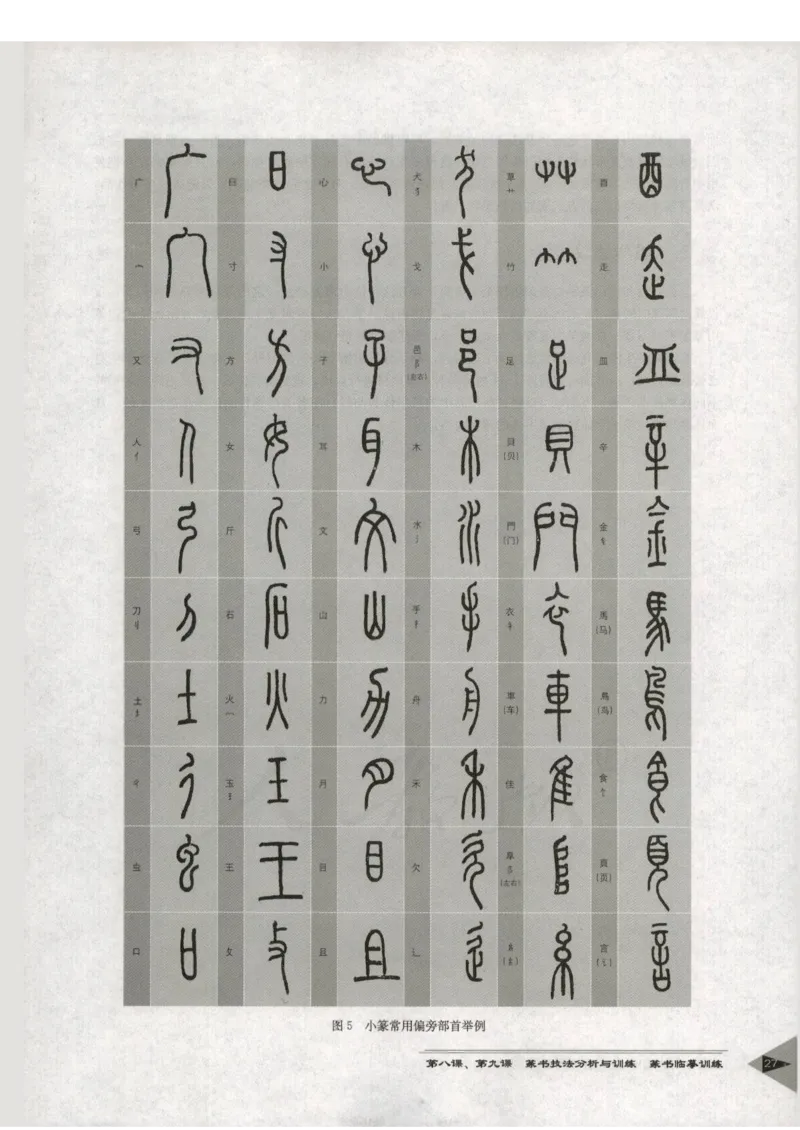 广 日 心 犬 犭 草 艹 酉
宀 寸 小 戈 竹 走
又 方 子 邑 阝 (左右) 足 皿
人 亻 女 耳 木 貝 (贝) 辛
弓 斤 文 水 氵 門 (门) 金 钅
刀 刂 石 山 手 扌 衣 衤 馬 (马)
土 火 灬 力 舟 車 (车) 鳥 (鸟)
彳 玉 月 禾 隹 食 饣
虫 王 目 欠 阜 阝 (左右) 頁 (页)
口 攵 且 辶 糸 (纟) 言 (讠)
图5 小篆常用偏旁部首举例
第八课、第九课 篆书技法分析与训练 篆书临摹训练
27